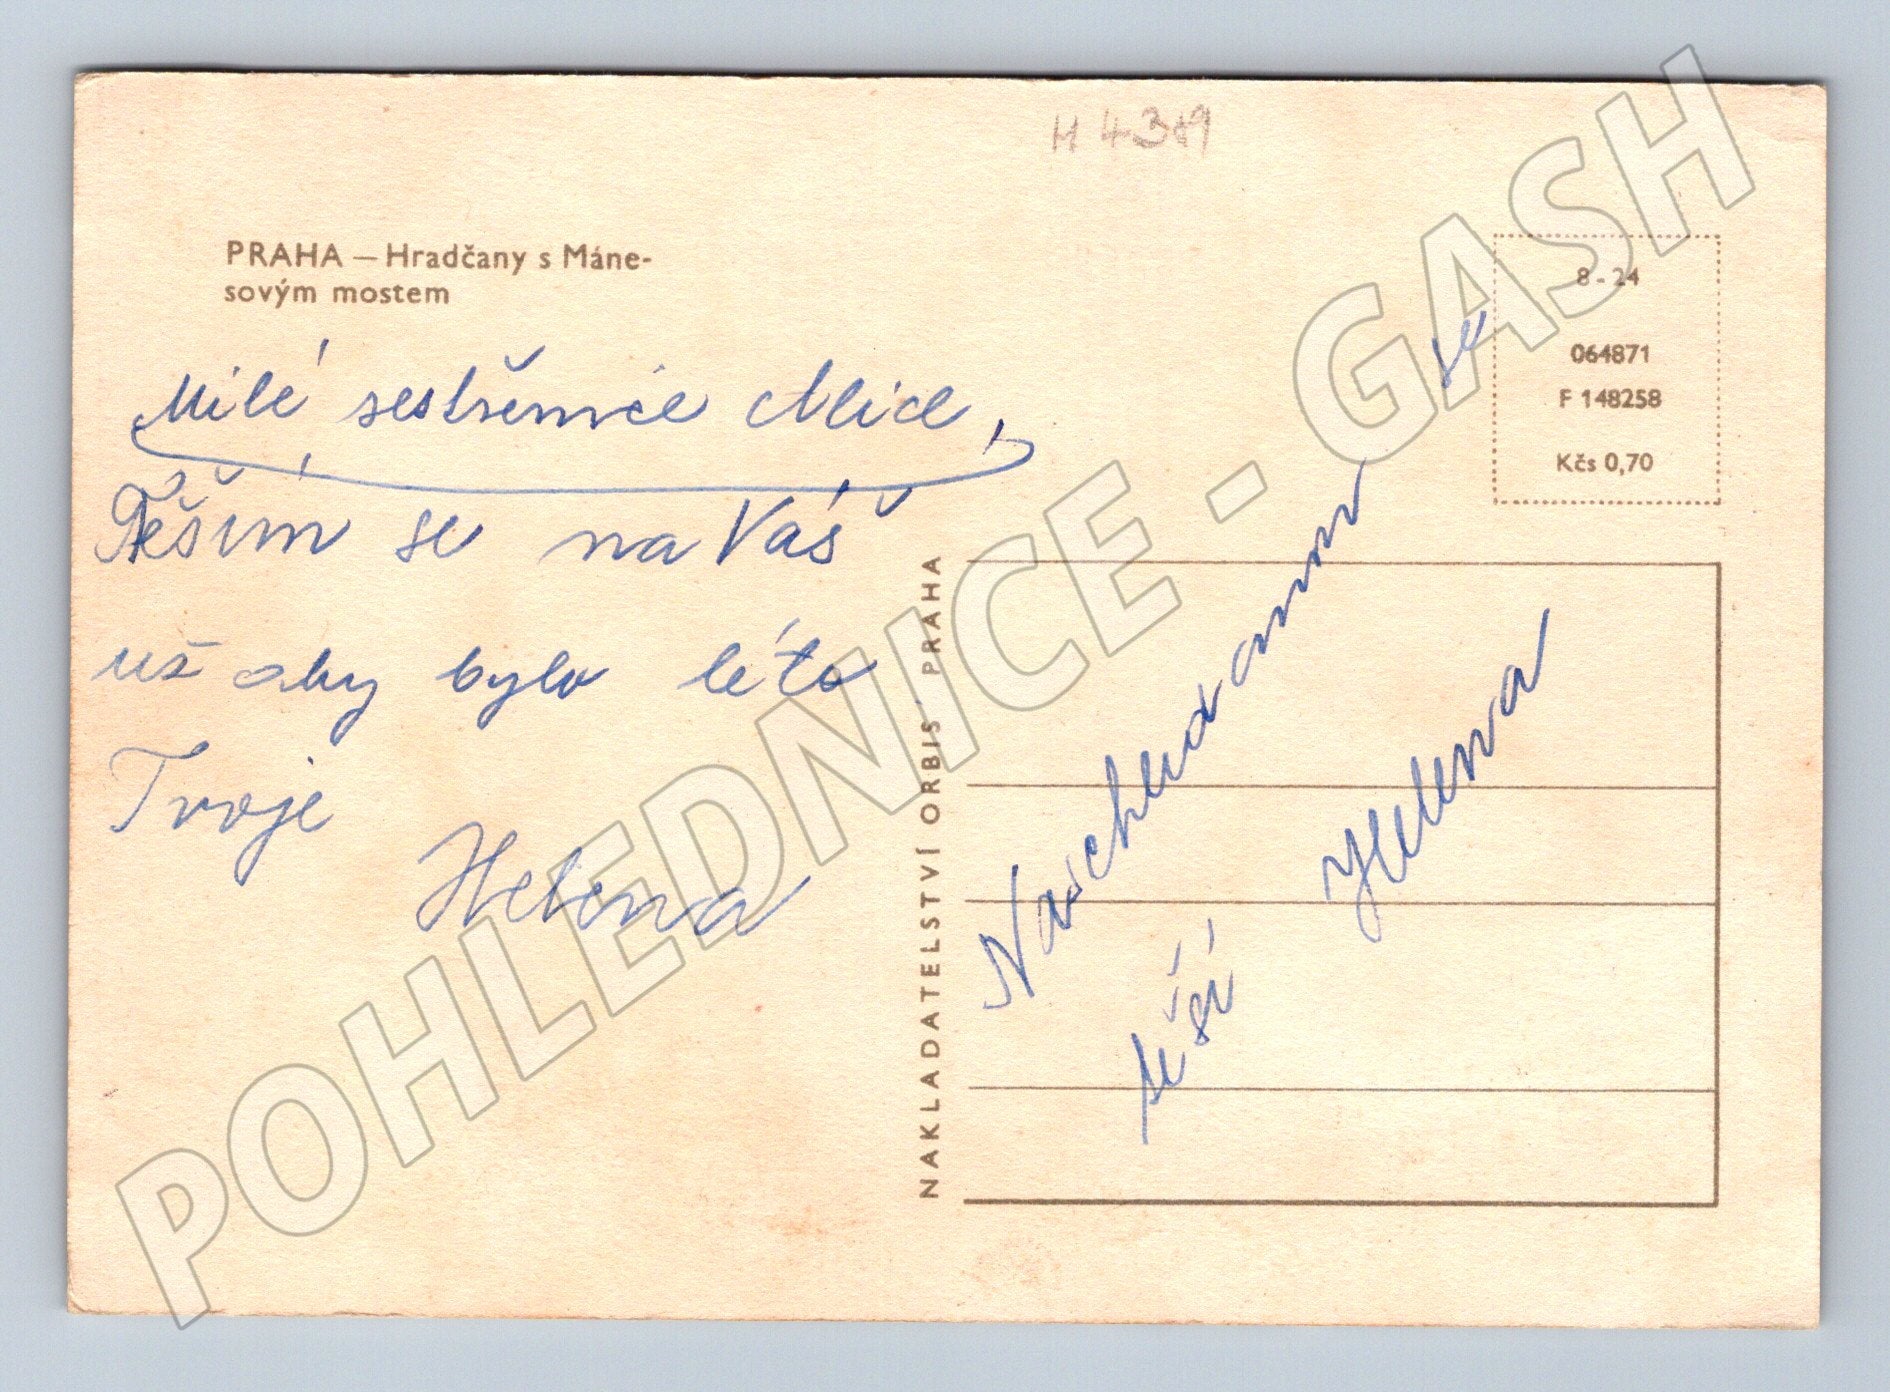 H 4389
PRAHA – Hradčany s Máne-
sovým mostem
8 - 24
064871
F 148258
Kčs 0,70
Milé sestřenice
Těším se na Váš
už aby bylo léto
Tvoje
Helena
NAKLADATELSTVÍ ORBIS PRAHA
se
těší Helena
POHLEDNICE - GASH